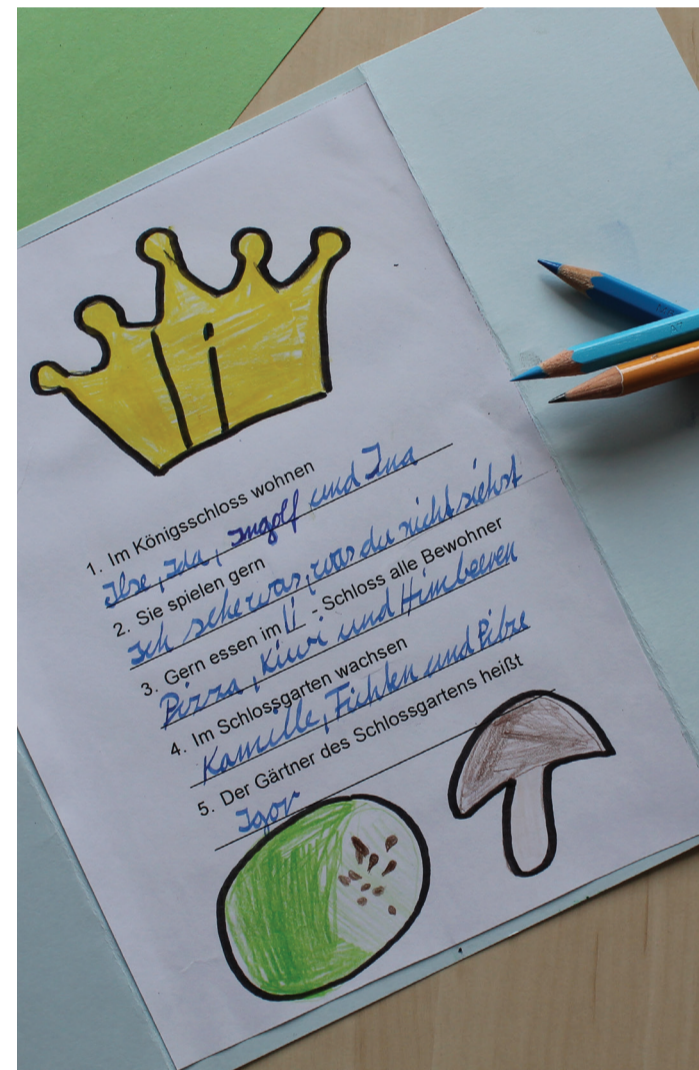 I i
1. Im Königsschloss wohnen
Ilse, Ida, Ingolf und Ina
2. Sie spielen gern
Ich sehe was, was du nicht siehst
3. Gern essen im Ii - Schloss alle Bewohner
Pizza, Kiwi und Himbeeren
4. Im Schlossgarten wachsen
Kamille, Fichten und Pilze
5. Der Gärtner des Schlossgartens heißt
Igor